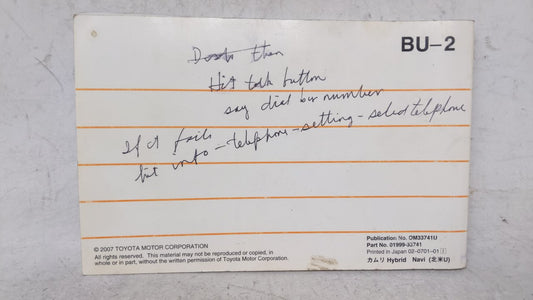 BU-2
then
Hit talk button
say dial by number
If it fails
hit info - telephone - setting - select telephone
© 2007 TOYOTA MOTOR CORPORATION
All rights reserved. This material may not be reproduced or copied, in
whole or in part, without the written permission of Toyota Motor Corporation.
Publication No. OM33741U
Part No. 01999-33741
Printed in Japan 02-0701-01
カムリ Hybrid Navi (北米U)